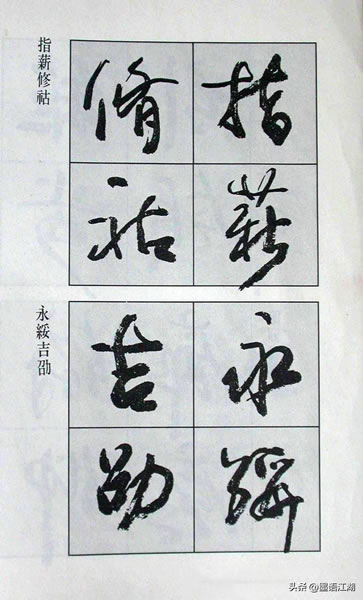 指薪
脩祜
指薪修祜
永綏
吉劭
永綏吉劭
头条 @國语江湖